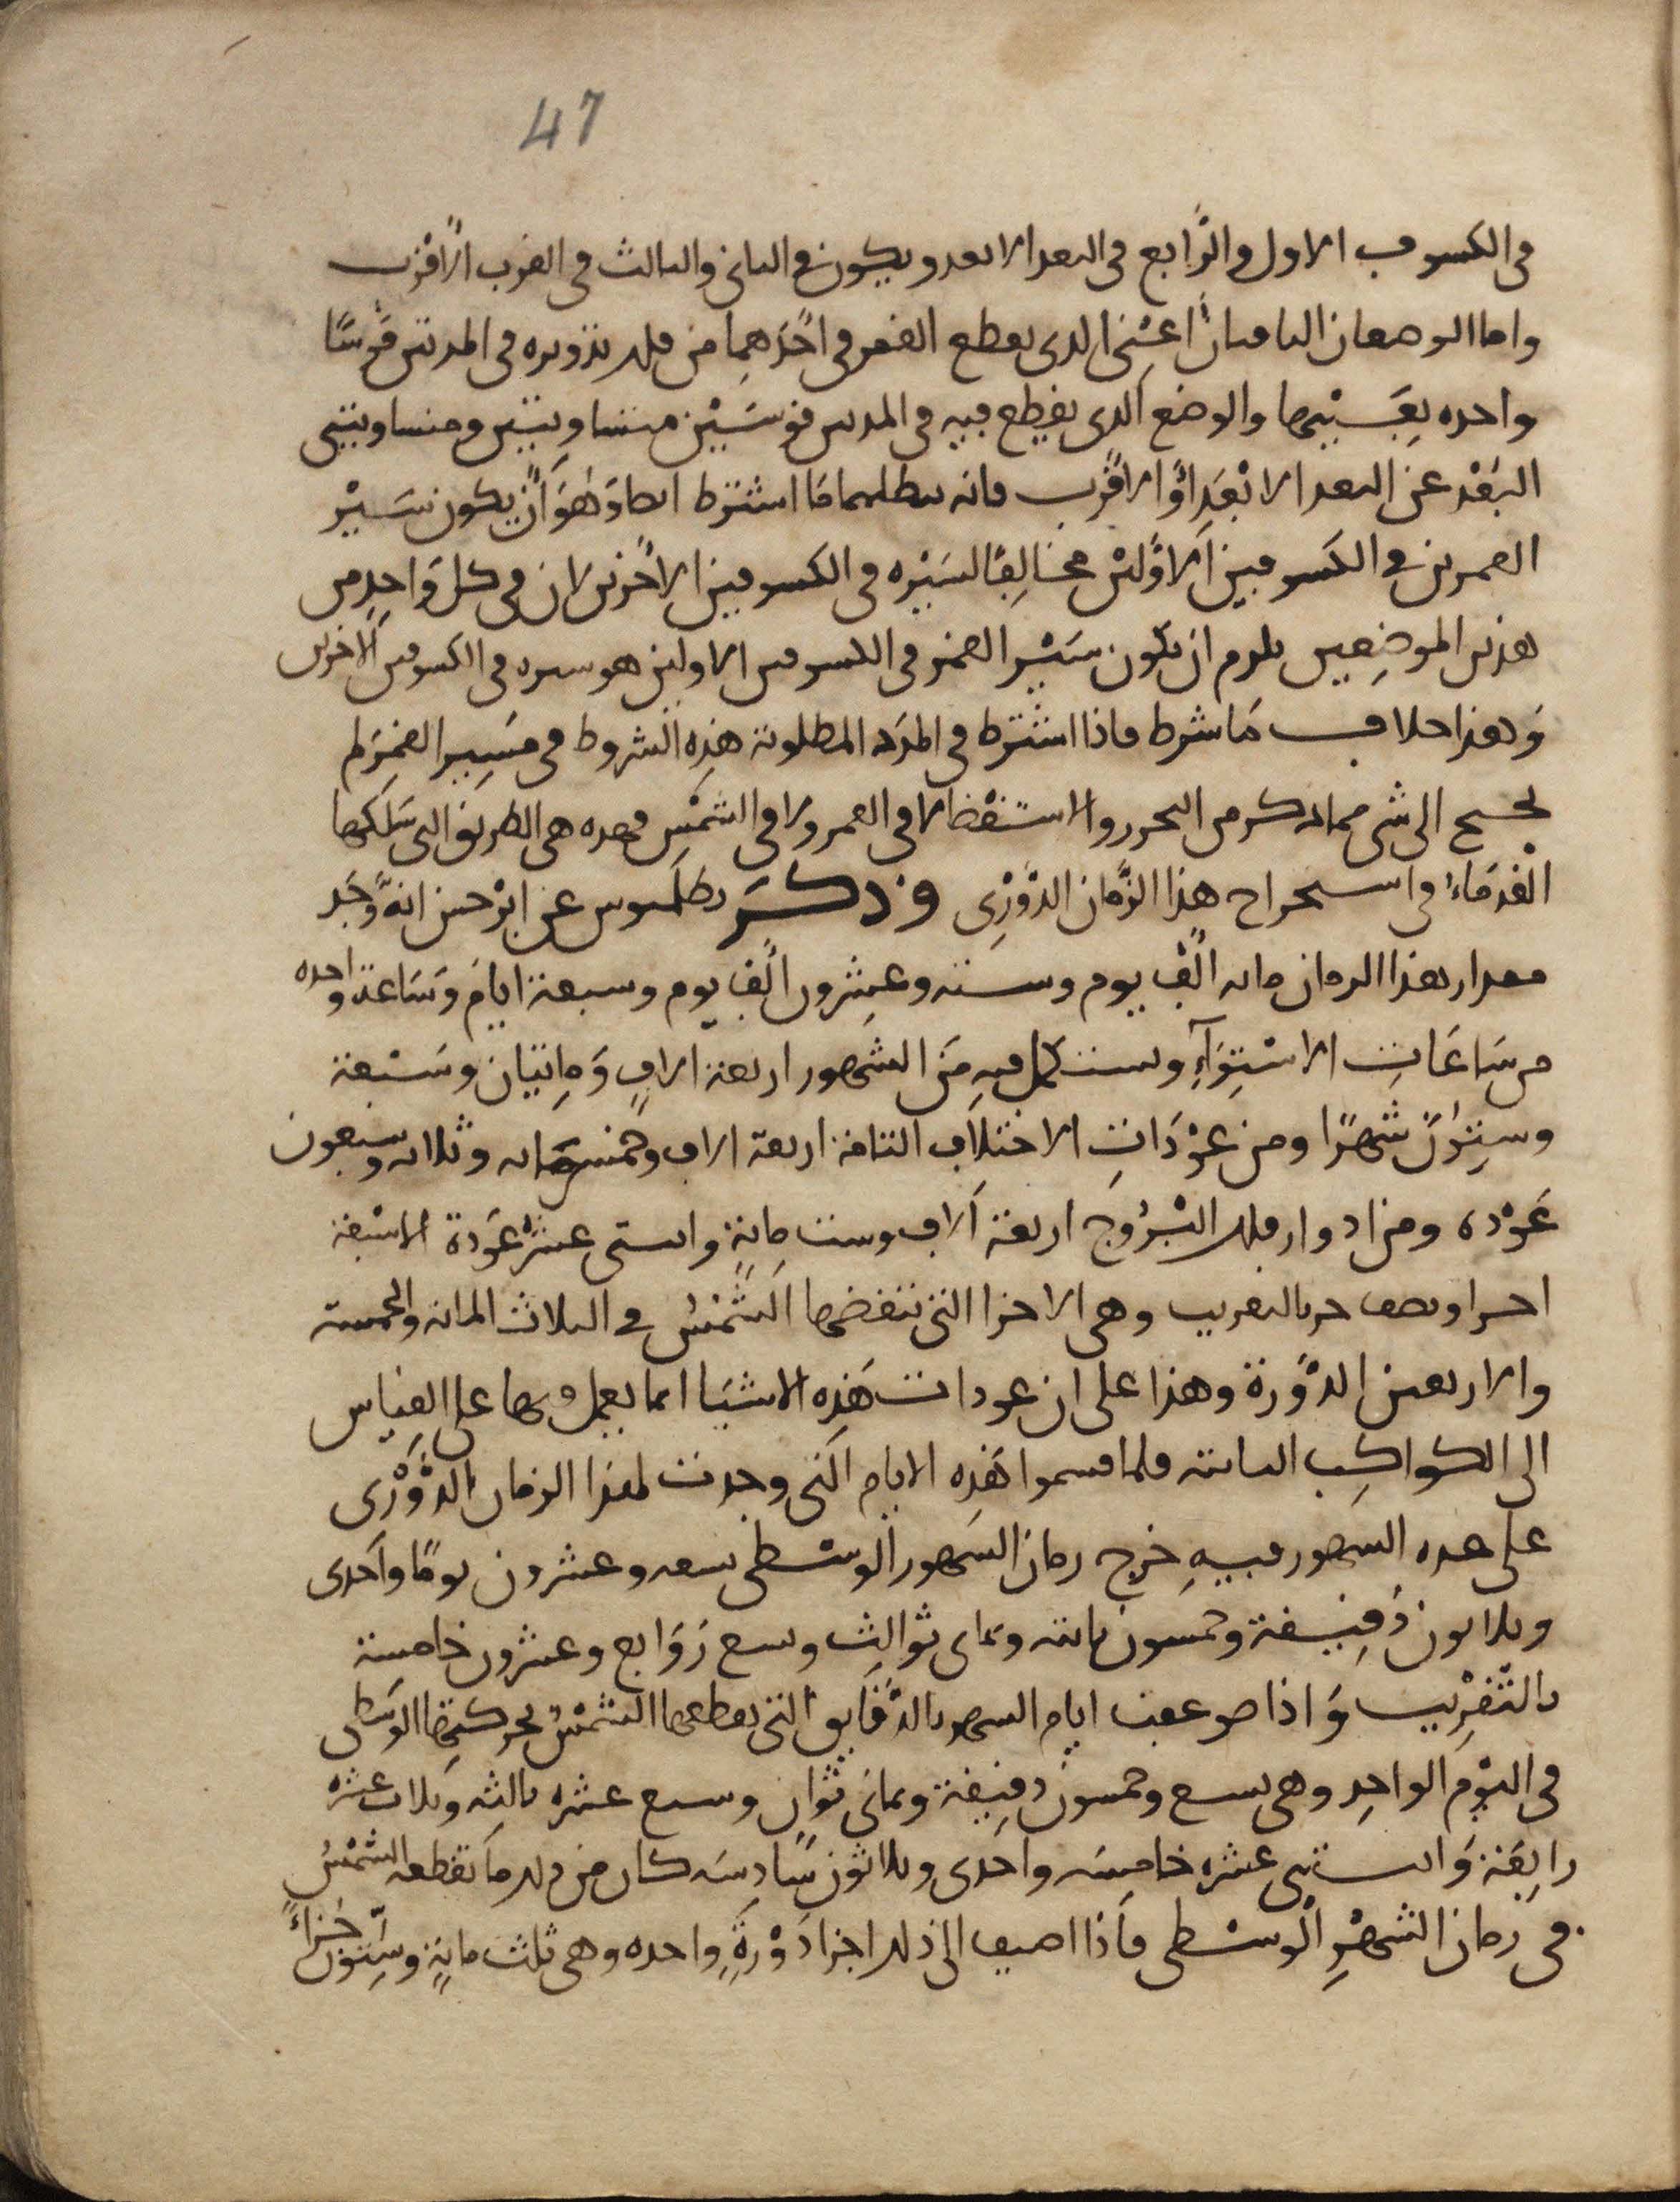 47
في الكسوف الاول والرابع في البعد الابعد ويكون في الثاني والثالث في القرب الأقرب
واما الوضعان الباقيان أعني الذي يقطع القمر في احدهما من فلك تدويره في المدتين قوسًا
واحده بعينها والوضع الذي يقطع فيه في المدتين قوسين متساويتين ومتساويتي
البعد عن البعد الابعد او الاقرب فانه يبطلهما ما اشترط ايضا وهو أن يكون سير
القمر في الكسوفين الاولين مخالفًا لسيره في الكسوفين الاخرين لان في كل واحد من
هذين الموضعين يلزم ان يكون سير القمر في الكسوفين الاولين هو سيره في الكسوفين الاخرين
وهذا خلاف ما شرط فاذا اشترط في المدة المطلوبة هذه الشروط في مسير القمر لم
يحتج الى شي مما ذكر من التحرر والاستقصا لا في القمر ولا في الشمس فهذه هي الطريق التي سلكها
القدماء في استخراج هذا الزمان الدوري وذكر بطلميوس عن ابرخس انه وجد
مقدار هذا الزمان مائة ألف يوم وستة وعشرون ألف يوم وسبعة ايام وساعة واحده
من ساعات الاستواء ويستكمل فيه من الشهور اربعة الاف ومايتان وسبعة
وستون شهرًا ومن عودات الاختلاف التامة اربعة الاف وخمسمائه وثلاثه وسبعون
عوده ومن ادوار فلك البروج اربعة آلاف وست مائةٍ واثنتى عشرة عودة الا سبعة
اجزا ونصف جزء بالتقريب وهي الاجزا التي تنقصها الشمس في الثلاث المائة والخمسة
والاربعين الدورة وهذا على ان عودات هذه الاشيا انما يعمل فيها على القياس
الى الكواكب الثابتة فلما قسموا هذه الايام التي وجدت لهذا الزمان الدوري
على عدة الشهور فيه خرج زمان الشهور الوسطى تسعه وعشرون يومًا واحدى
وثلاثون دقيقة وخمسون ثانية وثماني ثوالث وتسع روابع وعشرون خامسة
بالتقريب واذا ضوعفت ايام الشهر بالدقايق التي يقطعها الشمس بحركتها الوسطى
في اليوم الواحد وهي تسع وخمسون دقيقة وثماني ثوان وسبع عشره ثالثه وثلاث عشره
رابعة واثنتي عشره خامسة واحدى وثلاثون سادسه كان من ذلك ما تقطعه الشمس
في زمان الشهر الوسطى فاذا اضيف الى ذلك اجزا دورةٍ واحده وهي ثلث مايةٍ وستون جزأً